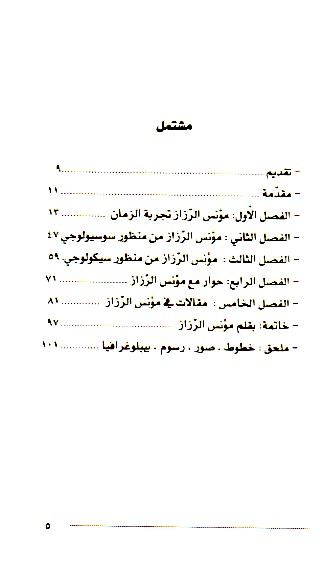 مشتمل
- تقديم ........................ ٩
- مقدّمة ........................ ١١
- الفصل الأول: مؤنس الرّزاز تجربة الزمان ............ ١٣
- الفصل الثاني : مؤنس الرّزاز من منظور سوسيولوجي ٤٧
- الفصل الثالث : مؤنس الرّزاز من منظور سيكولوجي. ٥٩
- الفصل الرابع: حوار مع مؤنس الرّزاز ................ ٧١
- الفصل الخامس : مقالات في مؤنس الرّزاز ............ ٨١
- خاتمة: بقلم مؤنس الرّزاز ........................ ٩٧
- ملحق : خطوط ، صور ، رسوم ، بيبلوغرافيا ............ ١٠١
٥